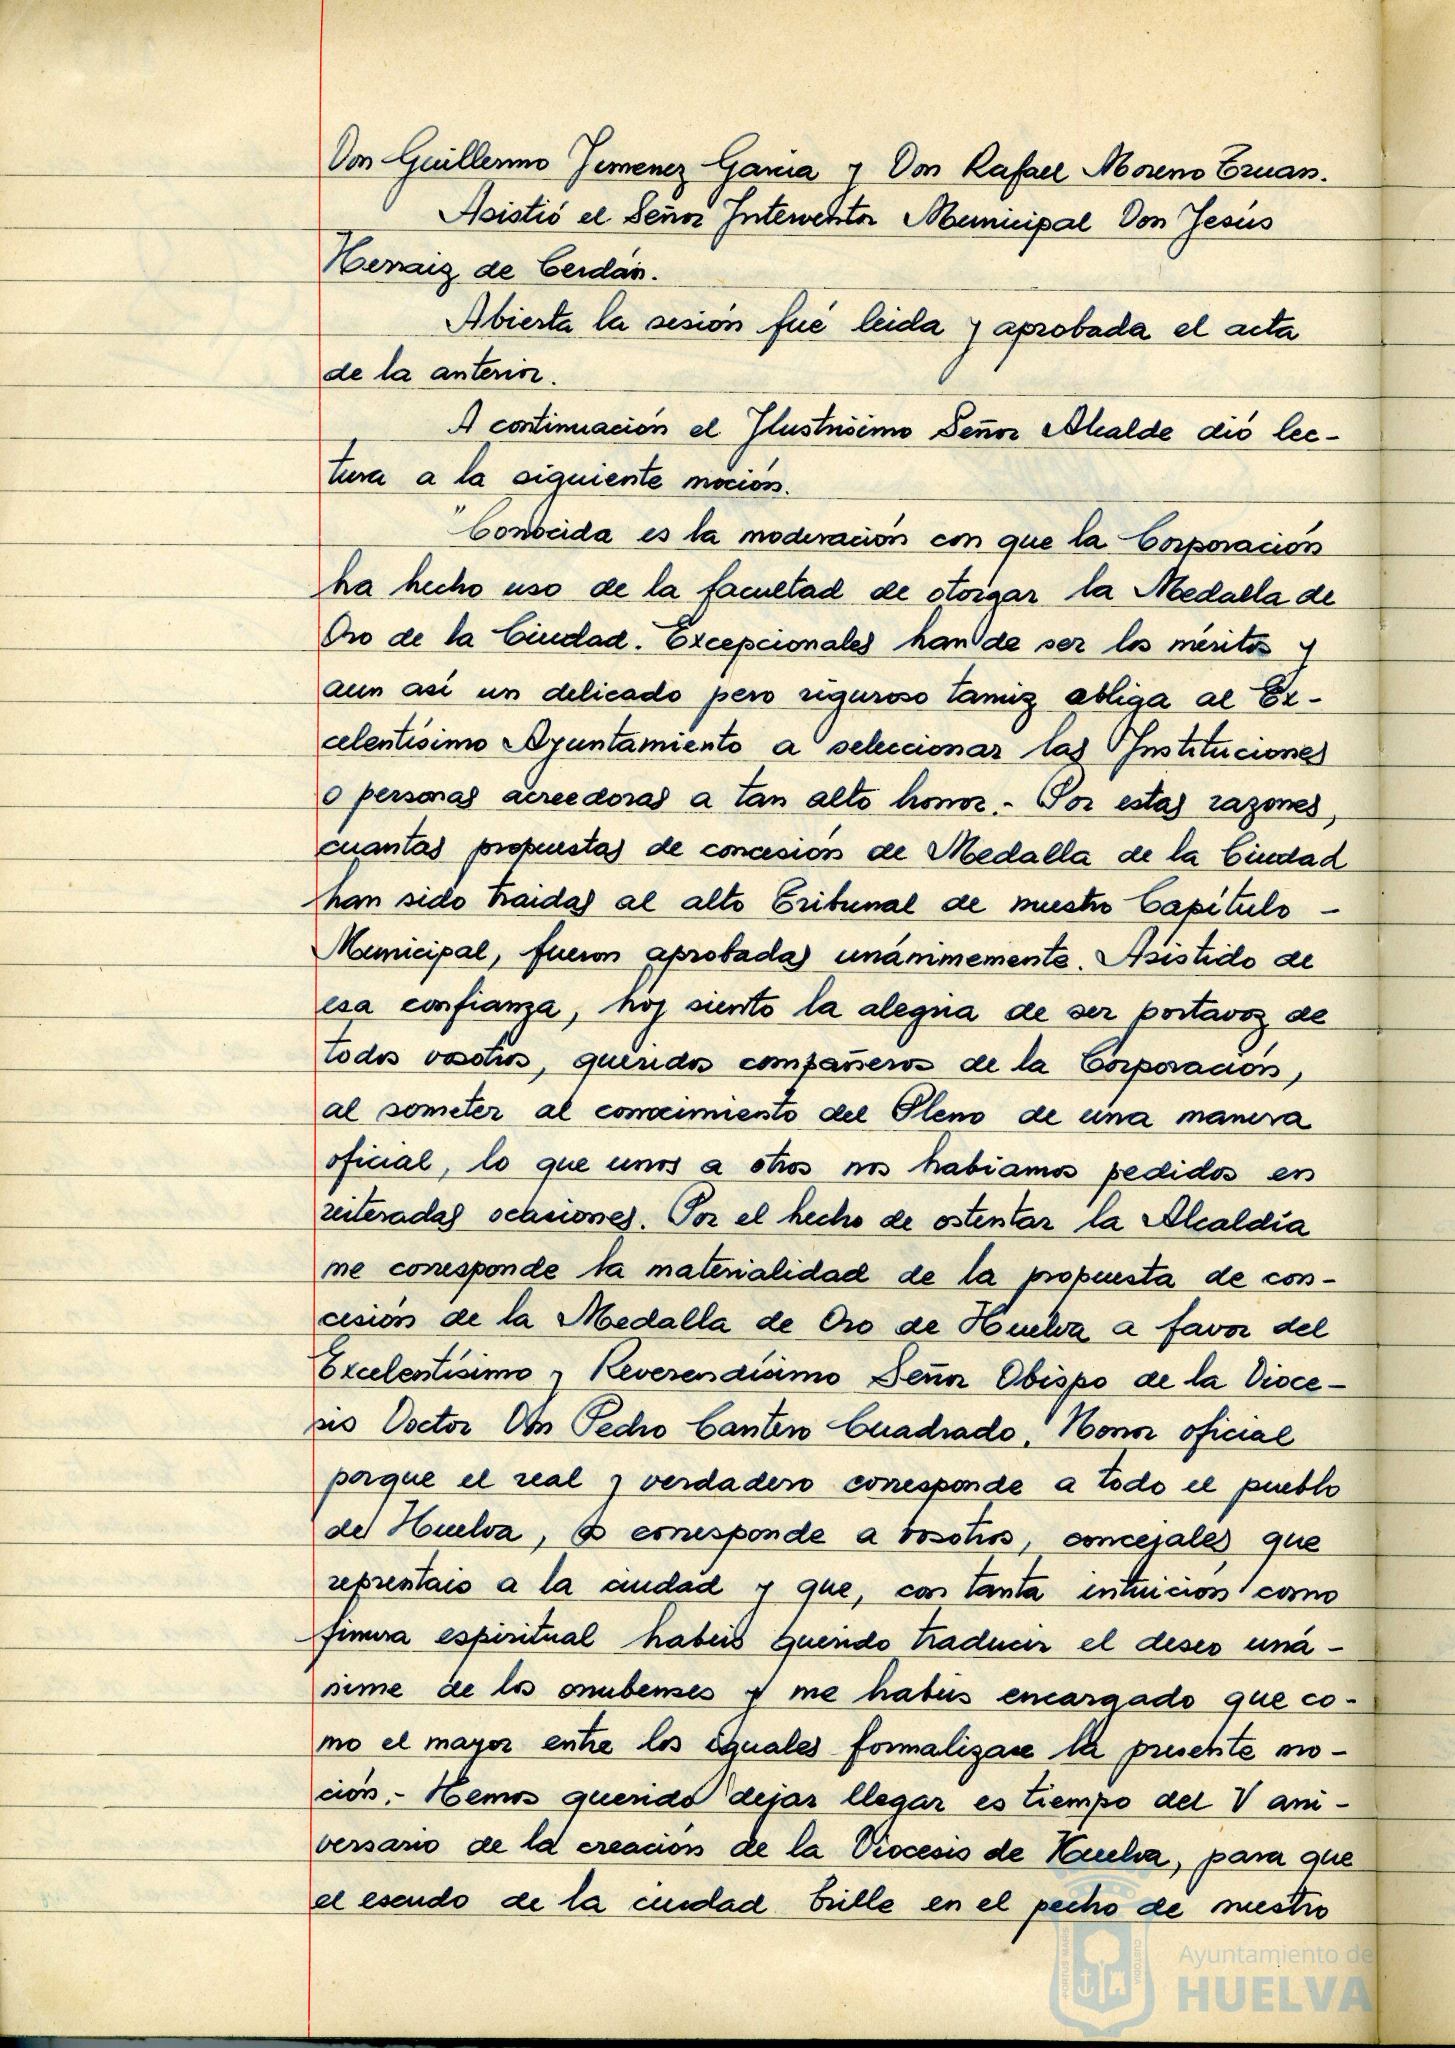 Don Guillermo Jimenez Garcia y Don Rafael Moreno Truan.
Asistió el Señor Interventor Municipal Don Jesús
Hernaiz de Cerdán.
Abierta la sesión fué leida y aprobada el acta
de la anterior.
A continuación el Ilustrísimo Señor Alcalde dió lec-
tura a la siguiente moción.
"Conocida es la moderación con que la Corporación
ha hecho uso de la facultad de otorgar la Medalla de
Oro de la Ciudad. Excepcionales han de ser los méritos y
aun así un delicado pero riguroso tamiz obliga al Ex-
celentísimo Ayuntamiento a seleccionar las Instituciones
o personas acreedoras a tan alto honor.- Por estas razones,
cuantas propuestas de concesión de Medalla de la Ciudad
han sido traidas al alto Tribunal de nuestro Capítulo -
Municipal, fueron aprobadas unánimemente. Asistido de
esa confianza, hoy siento la alegria de ser portavoz de
todos vosotros, queridos compañeros de la Corporación,
al someter al conocimiento del Pleno de una manera
oficial, lo que unos a otros nos habiamos pedidos en
reiteradas ocasiones. Por el hecho de ostentar la Alcaldía
me corresponde la materialidad de la propuesta de con-
cesión de la Medalla de Oro de Huelva a favor del
Excelentísimo y Reverendísimo Señor Obispo de la Dioce-
sis Doctor Don Pedro Cantero Cuadrado. Honor oficial
porque el real y verdadero corresponde a todo el pueblo
de Huelva, os corresponde a vosotros, concejales que
reprentais a la ciudad y que, con tanta intuición como
finura espiritual habeis querido traducir el deseo uná-
nime de los onubenses y me habeis encargado que co-
mo el mayor entre los iguales formalizase la presente mo-
ción.- Hemos querido dejar llegar es tiempo del V ani-
versario de la creación de la Diocesis de Huelva, para que
el escudo de la ciudad brille en el pecho de nuestro
PORTUS MARIS
CUSTODIA
Ayuntamiento de
HUELVA